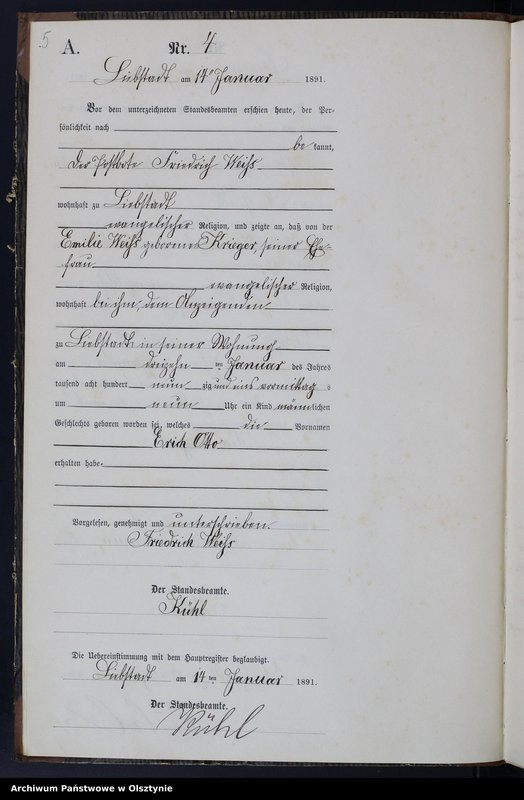 5
A.
Nr. 4
Liebstadt am 14ten Januar 1891.
Vor dem unterzeichneten Standesbeamten erschien heute, der Per-
sönlichkeit nach
be kannt,
der Postbote Friedrich Weiß
wohnhaft zu Liebstadt
evangelischer Religion, und zeigte an, daß von der
Emilie Weiß geborenen Krieger, seiner Ehe-
frau
evangelischer Religion,
wohnhaft bei ihm, dem Anzeigenden
zu Liebstadt in seiner Wohnung
am dreizehn ten Januar des Jahres
tausend acht hundert neun zig und eins vormittag s
um neun Uhr ein Kind männlichen
Geschlechts geboren worden sei, welches die Vornamen
Erich Otto
erhalten habe.
Vorgelesen, genehmigt und unterschrieben.
Friedrich Weiß
Der Standesbeamte.
Kühl
Die Uebereinstimmung mit dem Hauptregister beglaubigt.
Liebstadt am 14 ten Januar 1891.
Der Standesbeamte.
Kühl
Archiwum Państwowe w Olsztynie